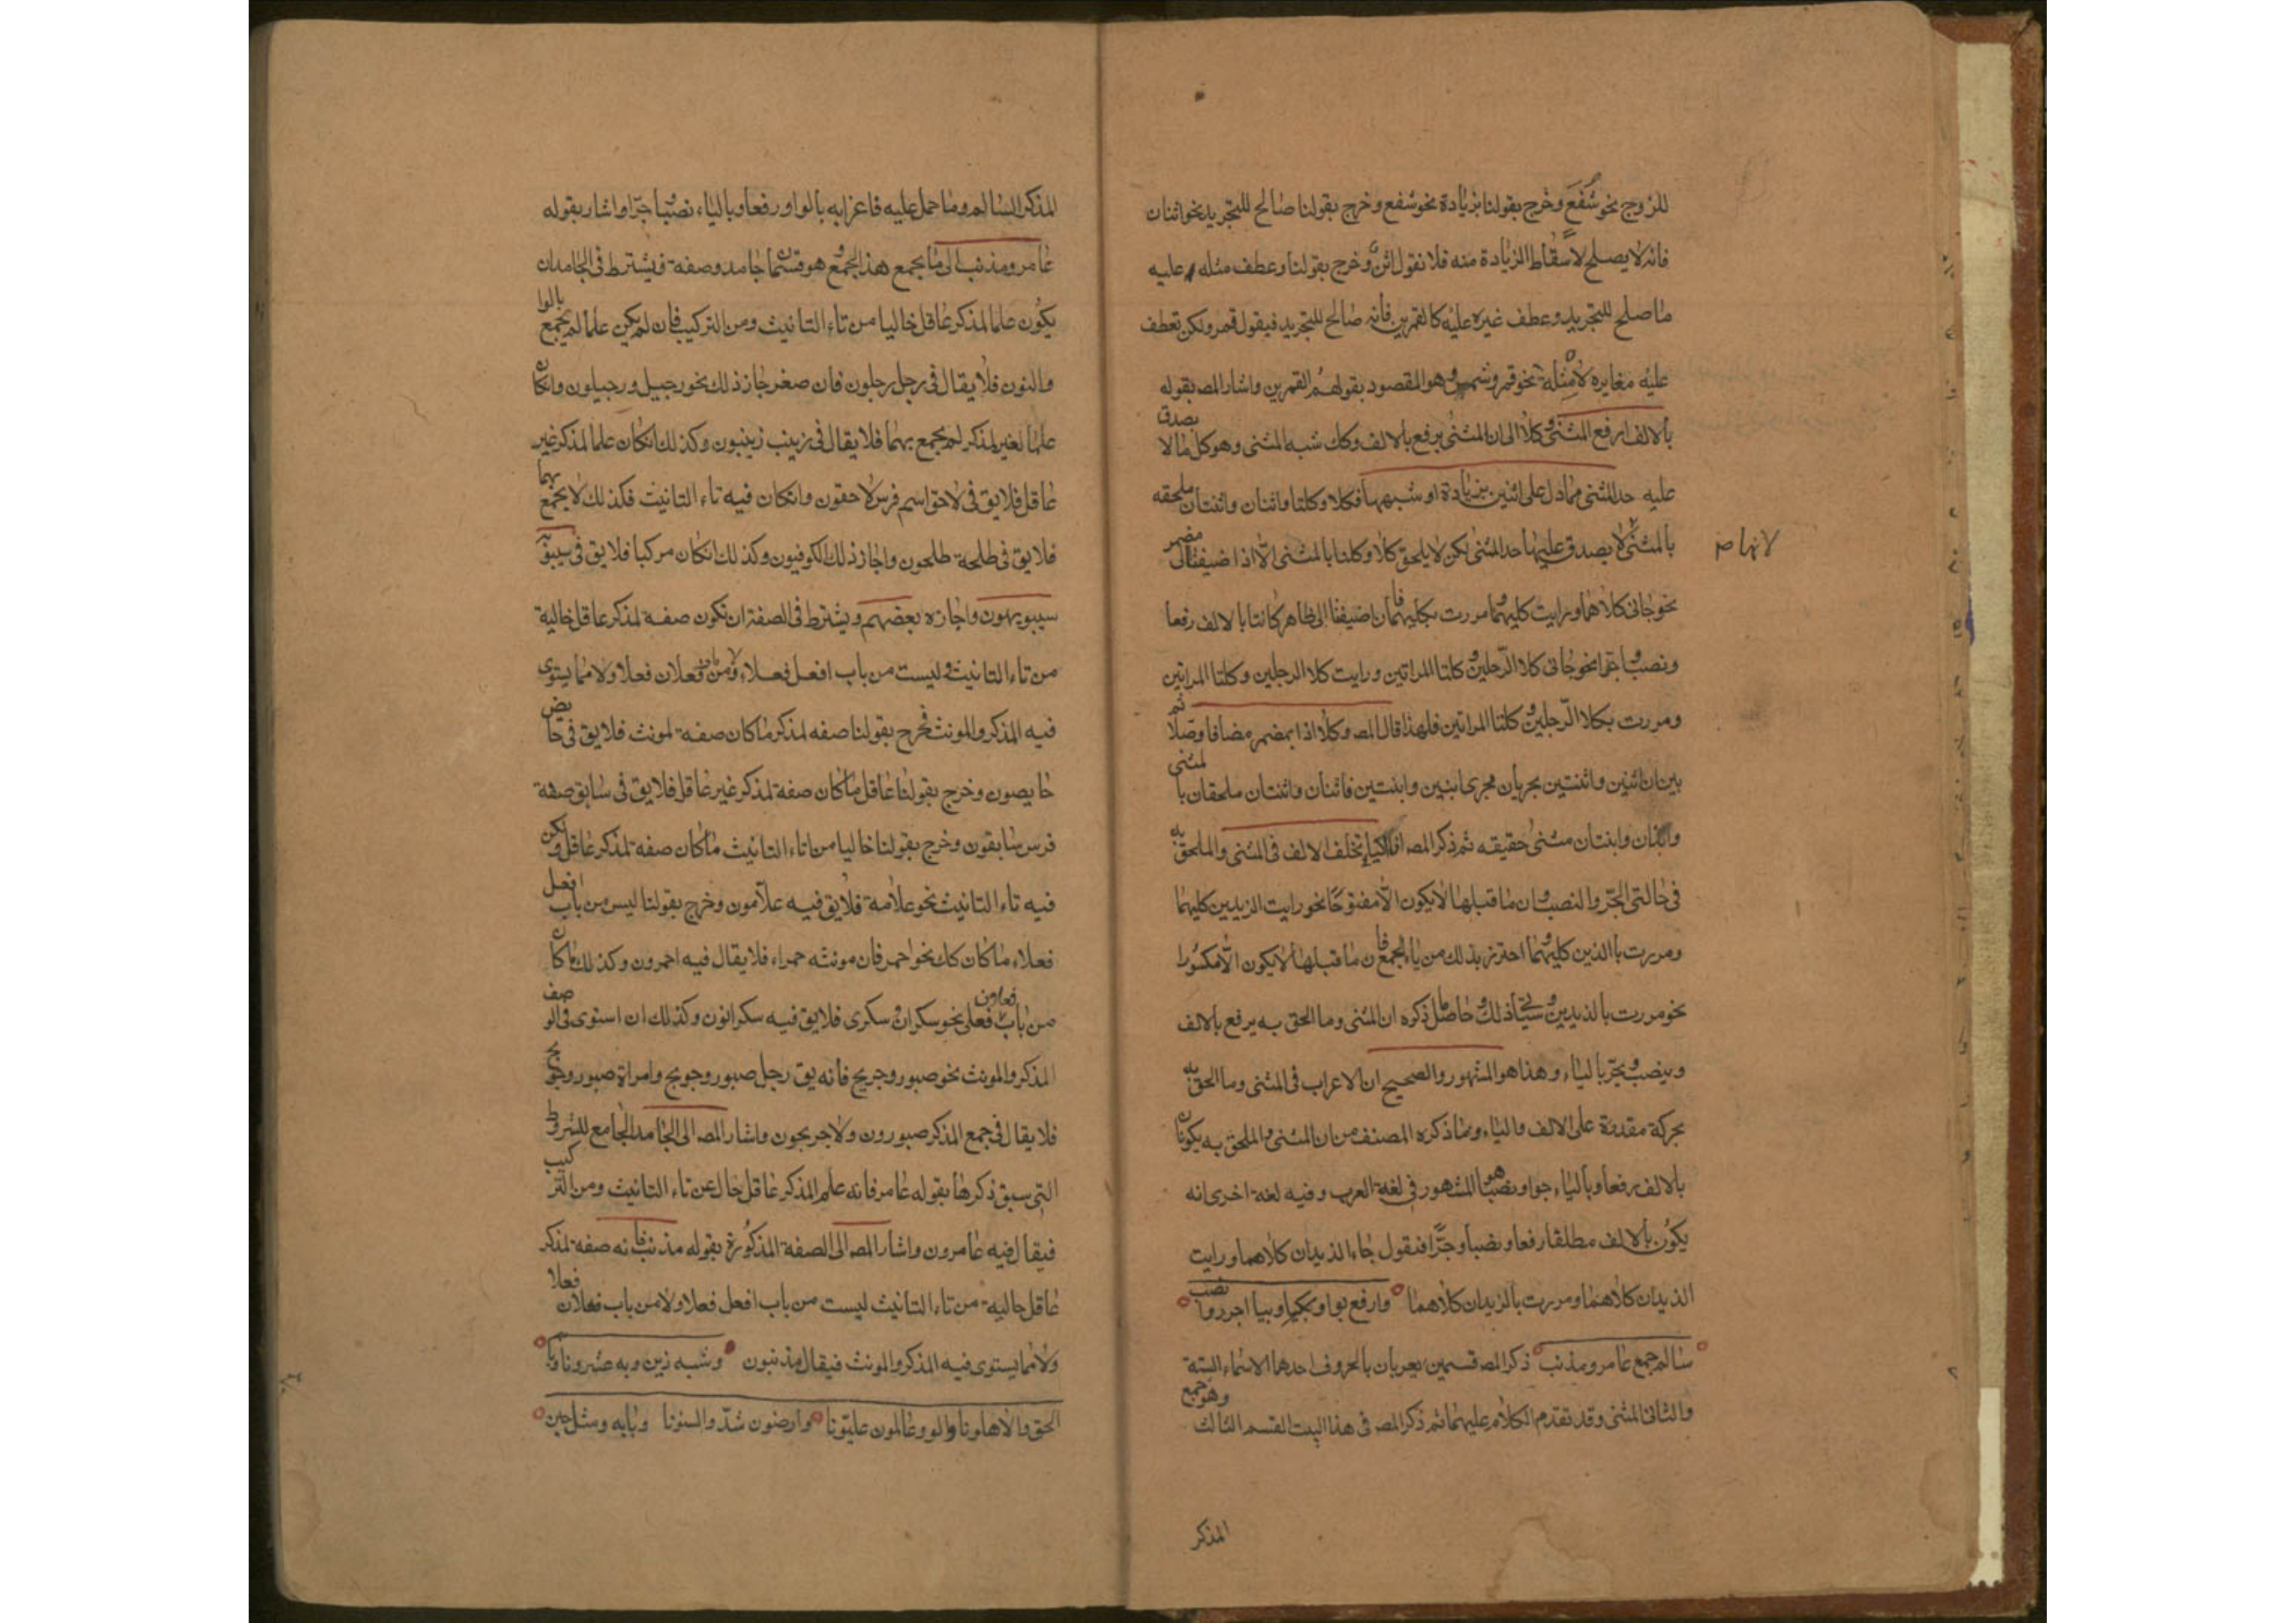 للزوج نحو شفع وخرج بقولنا بزيادة نحو شفع وخرج بقولنا صالح للتجريد نحو اثنان
فانه لا يصلح لاسقاط الزيادة منه فلا نقول اثن وخرج بقولنا وعطف مثله عليه
ما صلح للتجريد وعطف غيره عليه كالقمرين فانه صالح للتجريد فيقول قمر ولكن تعطف
عليه مغايره لا مثله نحو قمر وشمس وهو المقصود بقولهم القمرين واشار المص بقوله
بالالف ارفع المثنى وكلا الى ان المثنى يرفع بالالف وكك شبه المثنى وهو كل ما لا يصدق
عليه حد المثنى مما دل على اثنين بزيادة او شبهها فكلا وكلتا واثنان واثنتان ملحقه
بالمثنى لا يصدق عليها حد المثنى لكن لا يلحق كلا وكلتا بالمثنى الا اذا اضيفتا الى مضمر
لانها ص
نحو جانى كلاهما ورايت كليهما ومررت بكليهما فان اضيفتا الى ظاهر كانتا بالالف رفعا
ونصبا وجرا نحو جانى كلا الرجلين وكلتا المراتين ورايت كلا الرجلين وكلتا المراتين
ومررت بكلا الرجلين وكلتا المراتين فلهذا قال المص وكلا اذا بمضمر مضافا وصلا ثم
بين ان اثنين واثنتين يجريان مجرى ابنين وابنتين فاثنان واثنتان ملحقان بالمثنى
وابنان وابنتان مثنى حقيقه ثم ذكر المص ان الياء تخلف الالف فى المثنى والملحق به
فى حالتى الجر والنصب وان ما قبلها لا يكون الا مفتوحا نحو رايت الزيدين كليهما
ومررت بالذين كليهما واحترز بذلك من ياء الجمع فان ما قبلها لا يكون الا مكسورا
نحو مررت بالذيدين وسيأتى ذلك وحاصل ما ذكره ان المثنى وما الحق به يرفع بالالف
وينصب ويجر بالياء وهذا هو المشهور والصحيح ان الاعراب فى المثنى وما الحق به
بحركة مقدرة على الالف والياء وما ذكره المصنف من ان المثنى والملحق به يكونان
بالالف رفعا وبالياء جرا ونصبا هو المشهور فى لغة العرب وفيه لغة اخرى انه
يكون بالالف مطلقا رفعا ونصبا وجرا فنقول جاء الذيدان كلاهما ورايت
الذيدان كلاهما ومررت بالزيدان كلاهما وارفع بواو وبيا اجرر وانصب
سالم جمع عامر ومذنب ذكر المص قسمين يعربان بالحروف احدهما الاسماء الستة
والثانى المثنى وقد تقدم الكلام عليهما ثم ذكر المص فى هذا البيت القسم الثالث وهو جمع
المذكر
المذكر السالم وما حمل عليه فاعرابه بالواو رفعا وبالياء نصبا وجرا واشار بقوله
عامر ومذنب الى ما يجمع هذا الجمع وهو قسمان جامد وصفة فيشترط فى الجامد ان
يكون علما لمذكر عاقل خاليا من تاء التانيث ومن التركيب فان لم يكن علما لم يجمع بالوا
والنون فلا يقال فى رجل رجلون فان صغر جاز ذلك نحو رجيل ورجيلون وان كان
علما لغير مذكر لم يجمع بهما فلا يقال فى زينب زينبون وكذلك ان كان علما لمذكر غير
عاقل فلا يق فى لاحق اسم فرس لاحقون وان كان فيه تاء التانيث فكذلك لا يجمع بهما
فلا يق فى طلحة طلحون واجاز ذلك الكوفيون وكذلك ان كان مركبا فلا يق فى سيبويه
سيبويهون واجازه بعضهم ويشترط فى الصفة ان تكون صفة لمذكر عاقل خالية
من تاء التانيث وليست من باب افعل فعلاء ولا من باب فعلان فعلا ولا مما يستوى
فيه المذكر والمونث فخرج بقولنا صفه لمذكر ما كان صفة لمونث فلا يق فى حايض
حايصون وخرج بقولنا عاقل ما كان صفة لمذكر غير عاقل فلا يق فى سابق صفة
فرس سابقون وخرج بقولنا خاليا من تاء التانيث ما كان صفه لمذكر عاقل ولكن
فيه تاء التانيث نحو علامة فلا يق فيه علامون وخرج بقولنا ليس من باب افعل
فعلاء ما كان كك نحو احمر فان مونثه حمراء فلا يقال فيه احمرون وكذلك ما كان
من باب فعلان فعلى نحو سكران وسكرى فلا يق فيه سكرانون وكذلك ان استوى فى الوصف
المذكر والمونث نحو صبور وجريح فانه يق رجل صبور وجريح وامراة صبور وجريح
فلا يقال فى جمع المذكر صبورون ولا جريحون واشار المص الى الجامد الجامع للشروط
التى سبق ذكرها بقوله عامر فانه علم لمذكر عاقل خال عن تاء التانيث ومن التركيب
فيقال فيه عامرون واشار المص الى الصفة المذكورة بقوله مذنب فانه صفة لمذكر
عاقل خالية من تاء التانيث ليست من باب افعل فعلا ولا من باب فعلان فعلا
ولا مما يستوى فيه المذكر والمونث فيقال مذنبون وشبه ذين وبه عشرونا وبابه
الحق والاهلونا والو وعالمون عليونا وارضون شذ والسنونا وبابه ومثل حين